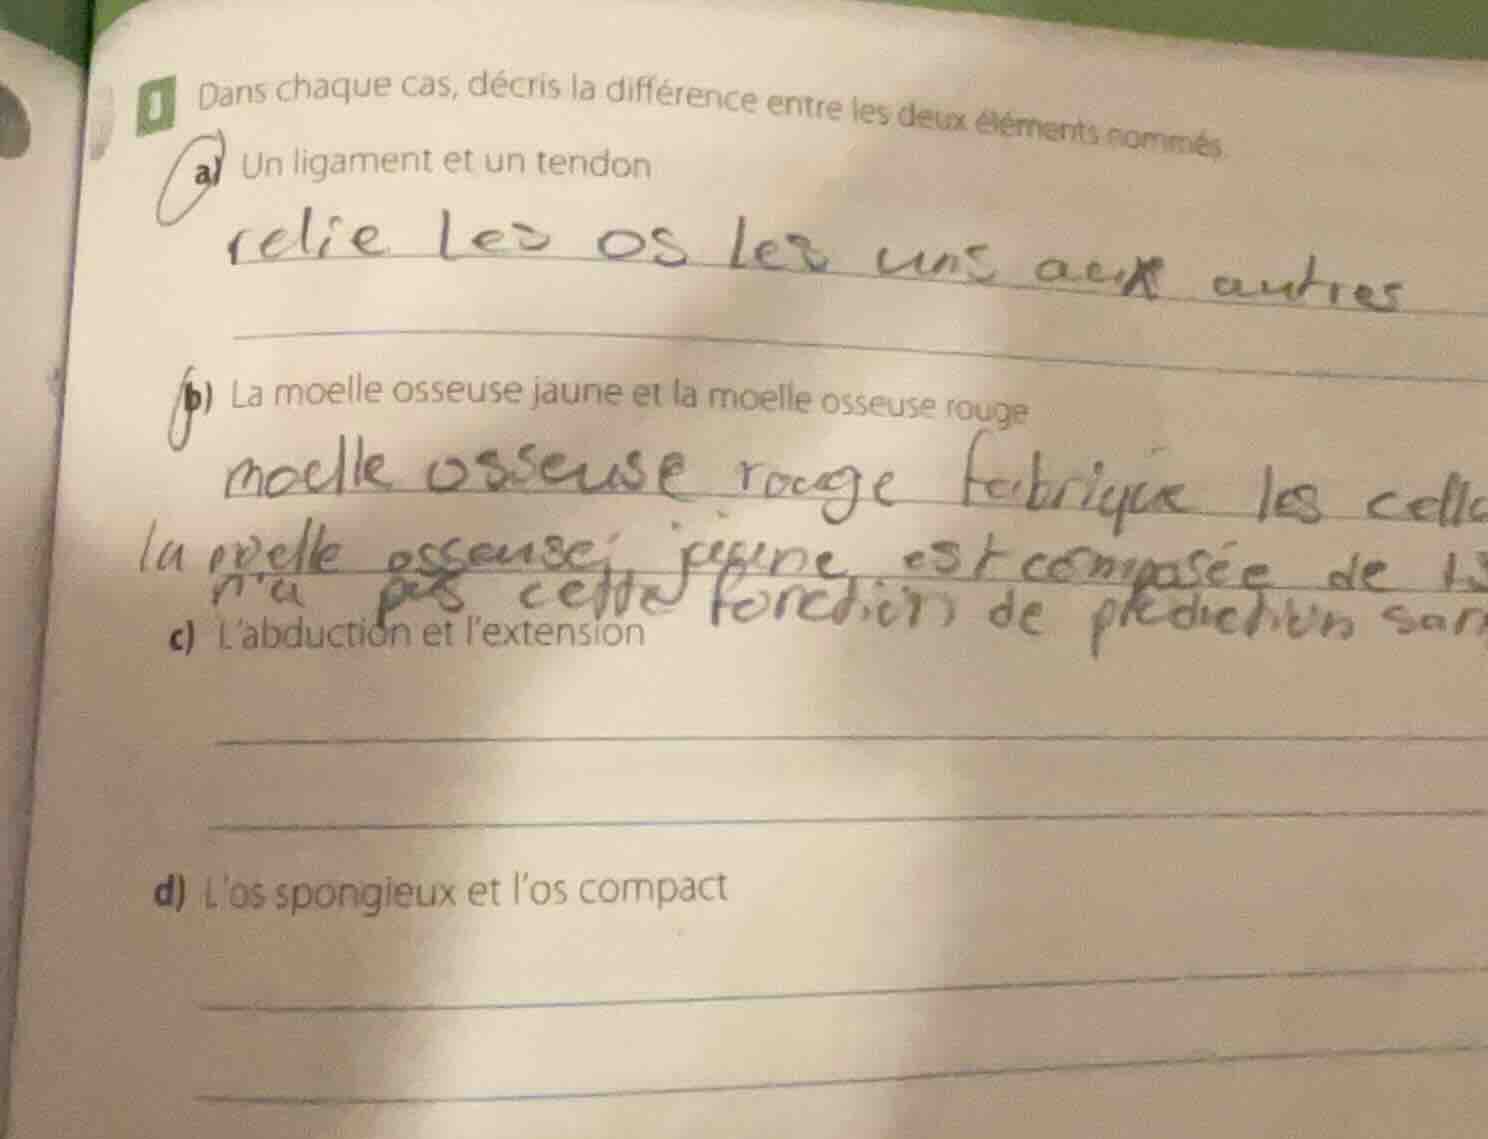 1 Dans chaque cas, décris la différence entre les deux éléments nommés.
a) Un ligament et un tendon
relie les os les uns aux autres
b) La moelle osseuse jaune et la moelle osseuse rouge
moelle osseuse rouge fabrique les cellu
la moelle osseuse jaune est composée de
n'a pas cette fonction de production san
c) L'abduction et l'extension
d) L'os spongieux et l'os compact